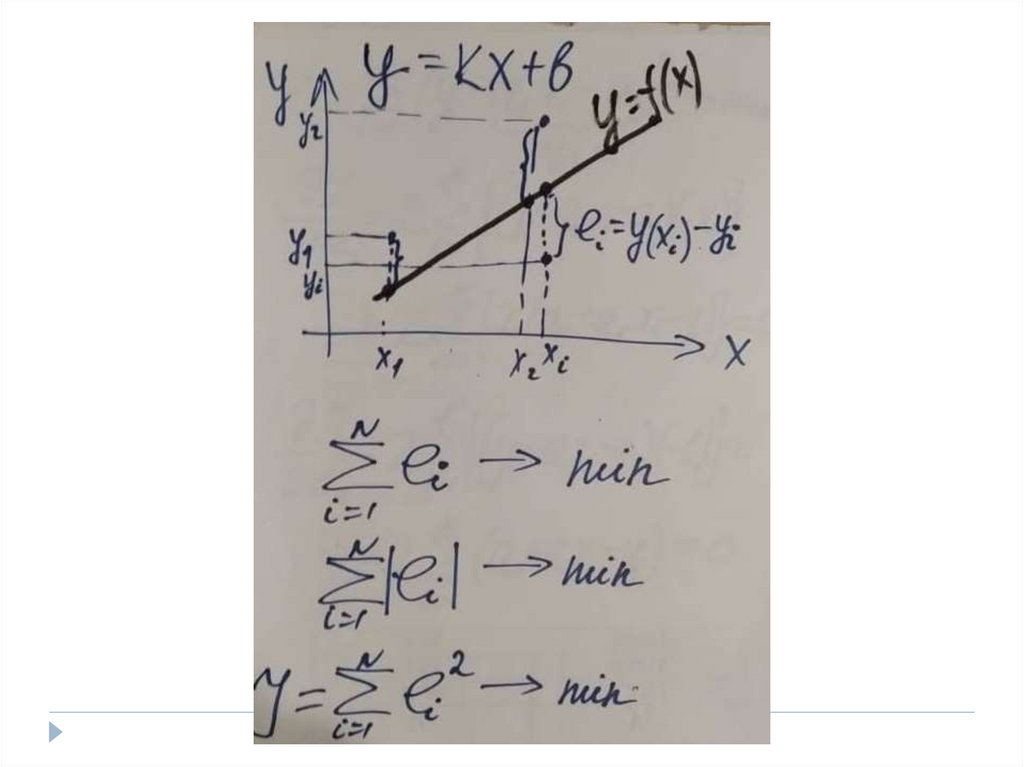 y = kx+b
y
y = f(x)
y₂
y₁
yᵢ
eᵢ = y(xᵢ) - yᵢ
x₁ x₂ xᵢ x
∑ᵢ₌₁ᴺ eᵢ → min
∑ᵢ₌₁ᴺ |eᵢ| → min
J = ∑ᵢ₌₁ᴺ eᵢ² → min